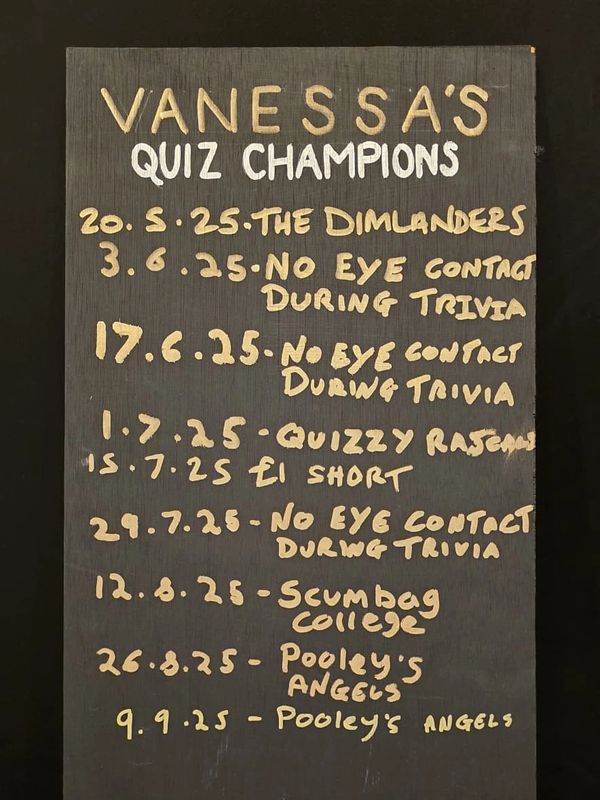 VANESSA'S
QUIZ CHAMPIONS
20.5.25.THE DIMLANDERS
3.6.25.NO EYE CONTACT
DURING TRIVIA
17.6.25.NO EYE CONTACT
DURING TRIVIA
1.7.25-QUIZZY RASCALS
15.7.25 £1 SHORT
29.7.25-NO EYE CONTACT
DURING TRIVIA
12.8.25-Scumbag
College
26.8.25- Pooley's
ANGELS
9.9.25 - Pooley's ANGELS